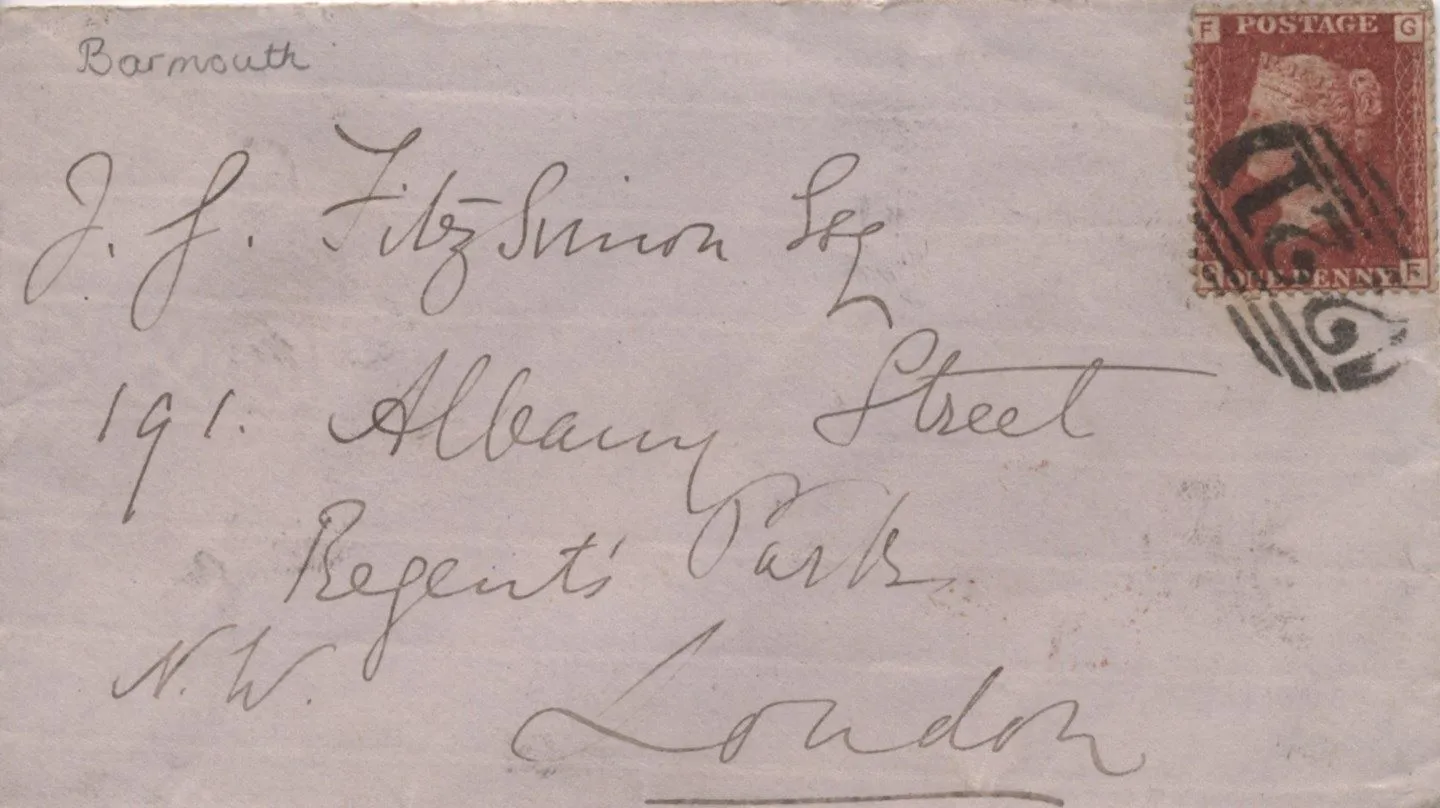 Barmouth
F POSTAGE G
G ONE PENNY F
J. J. FitzSimon Esq
191. Albany Street
Regent's Park
N.W.
London